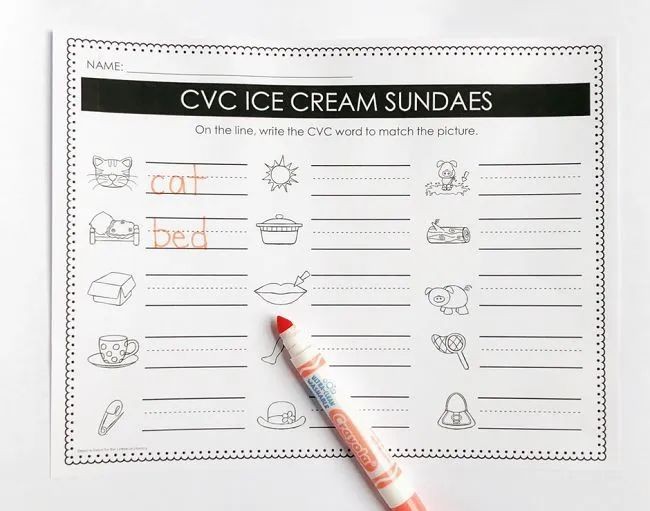 NAME:
CVC ICE CREAM SUNDAES
On the line, write the CVC word to match the picture.
cat
bed
Crayola